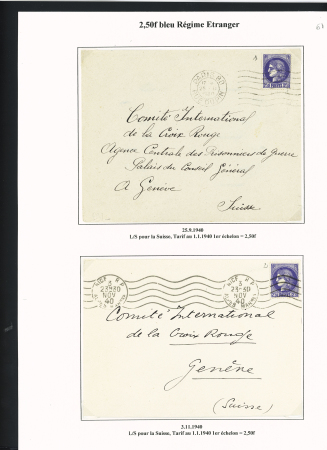 2,50f bleu Régime Etranger
Comité International
de la Croix Rouge
Agence Centrale des Prisonniers de Guerre
Palais du Conseil Général
A Genève
Suisse
25.9.1940
L/S pour la Suisse, Tarif au 1.1.1940 1er échelon = 2,50f
NICE R.P.
3
23-30
NOV
40
NICE R.P.
3
23-30
NOV
40
Comité International
de la Croix Rouge
Genève
(Suisse)
3.11.1940
L/S pour la Suisse, Tarif au 1.1.1940 1er échelon = 2,50f